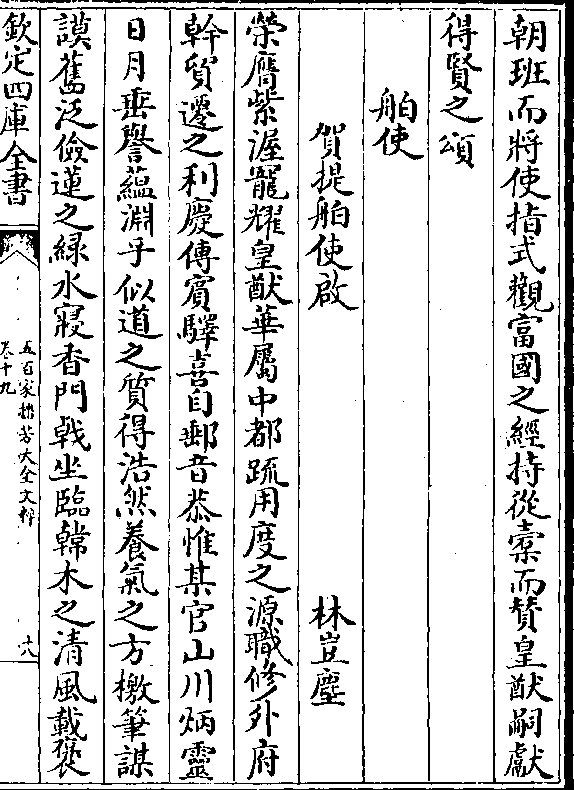 朝班而將使指式觀富國之經持從橐而賛皇猷嗣獻
得賢之頌
舶使
賀提舶使啟
林豈塵
榮膺紫渥寵耀皇猷華屬中都䟽用度之源職修外府
幹貿遷之利慶傳賓驛喜自郵音恭惟某官山川炳靈
日月垂譽蘊淵乎似道之質得浩然養氣之方檄筆謀
謨舊泛儉蓮之緑水寢香門㦸坐臨韓木之清風載褒
欽定四庫全書
五百家播芳大全文粹
卷十九
六